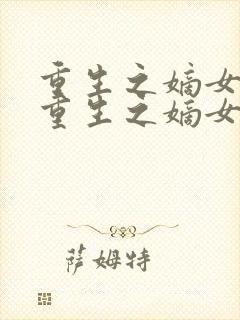 重生之嫡女
重生之嫡女
萨姆特